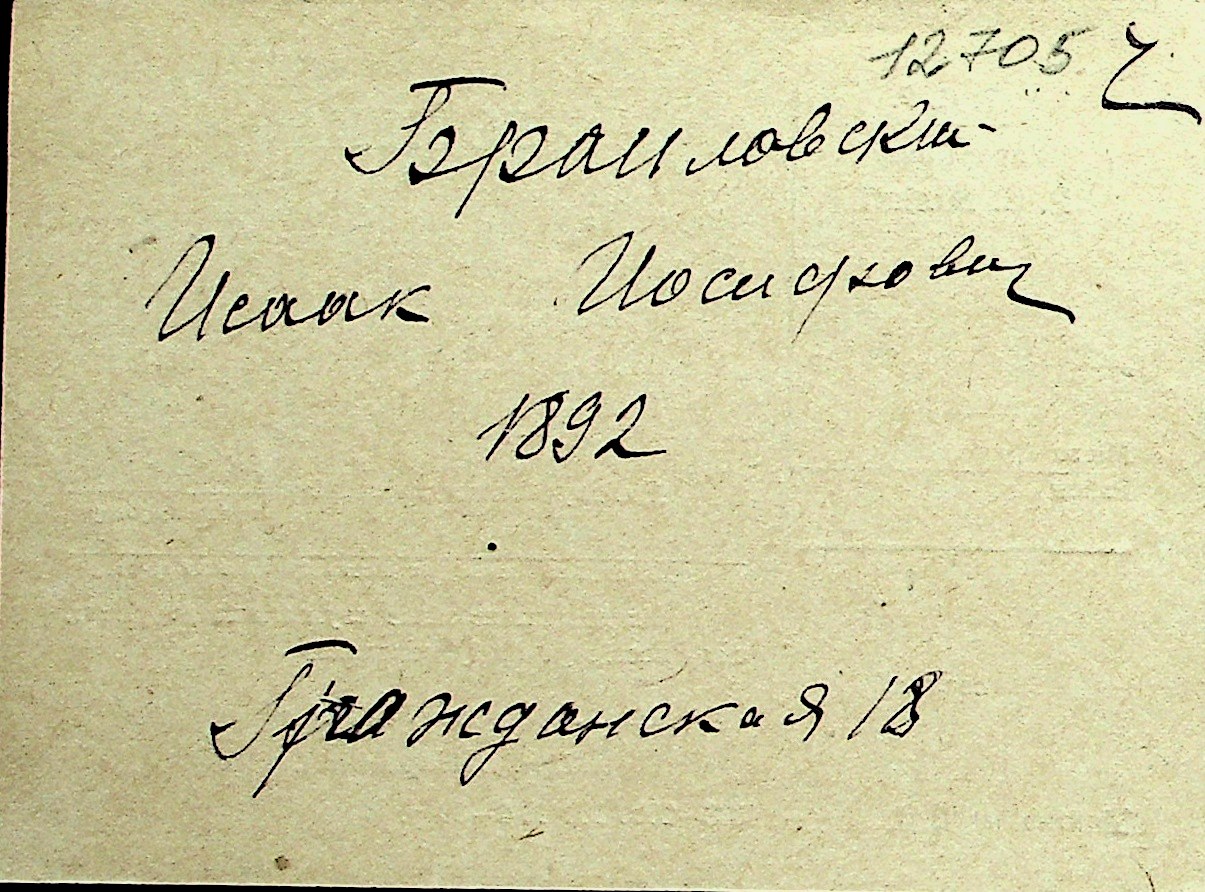 12705 ч
Браиловский
Исаак Иосифович
1892
Гражданская 18